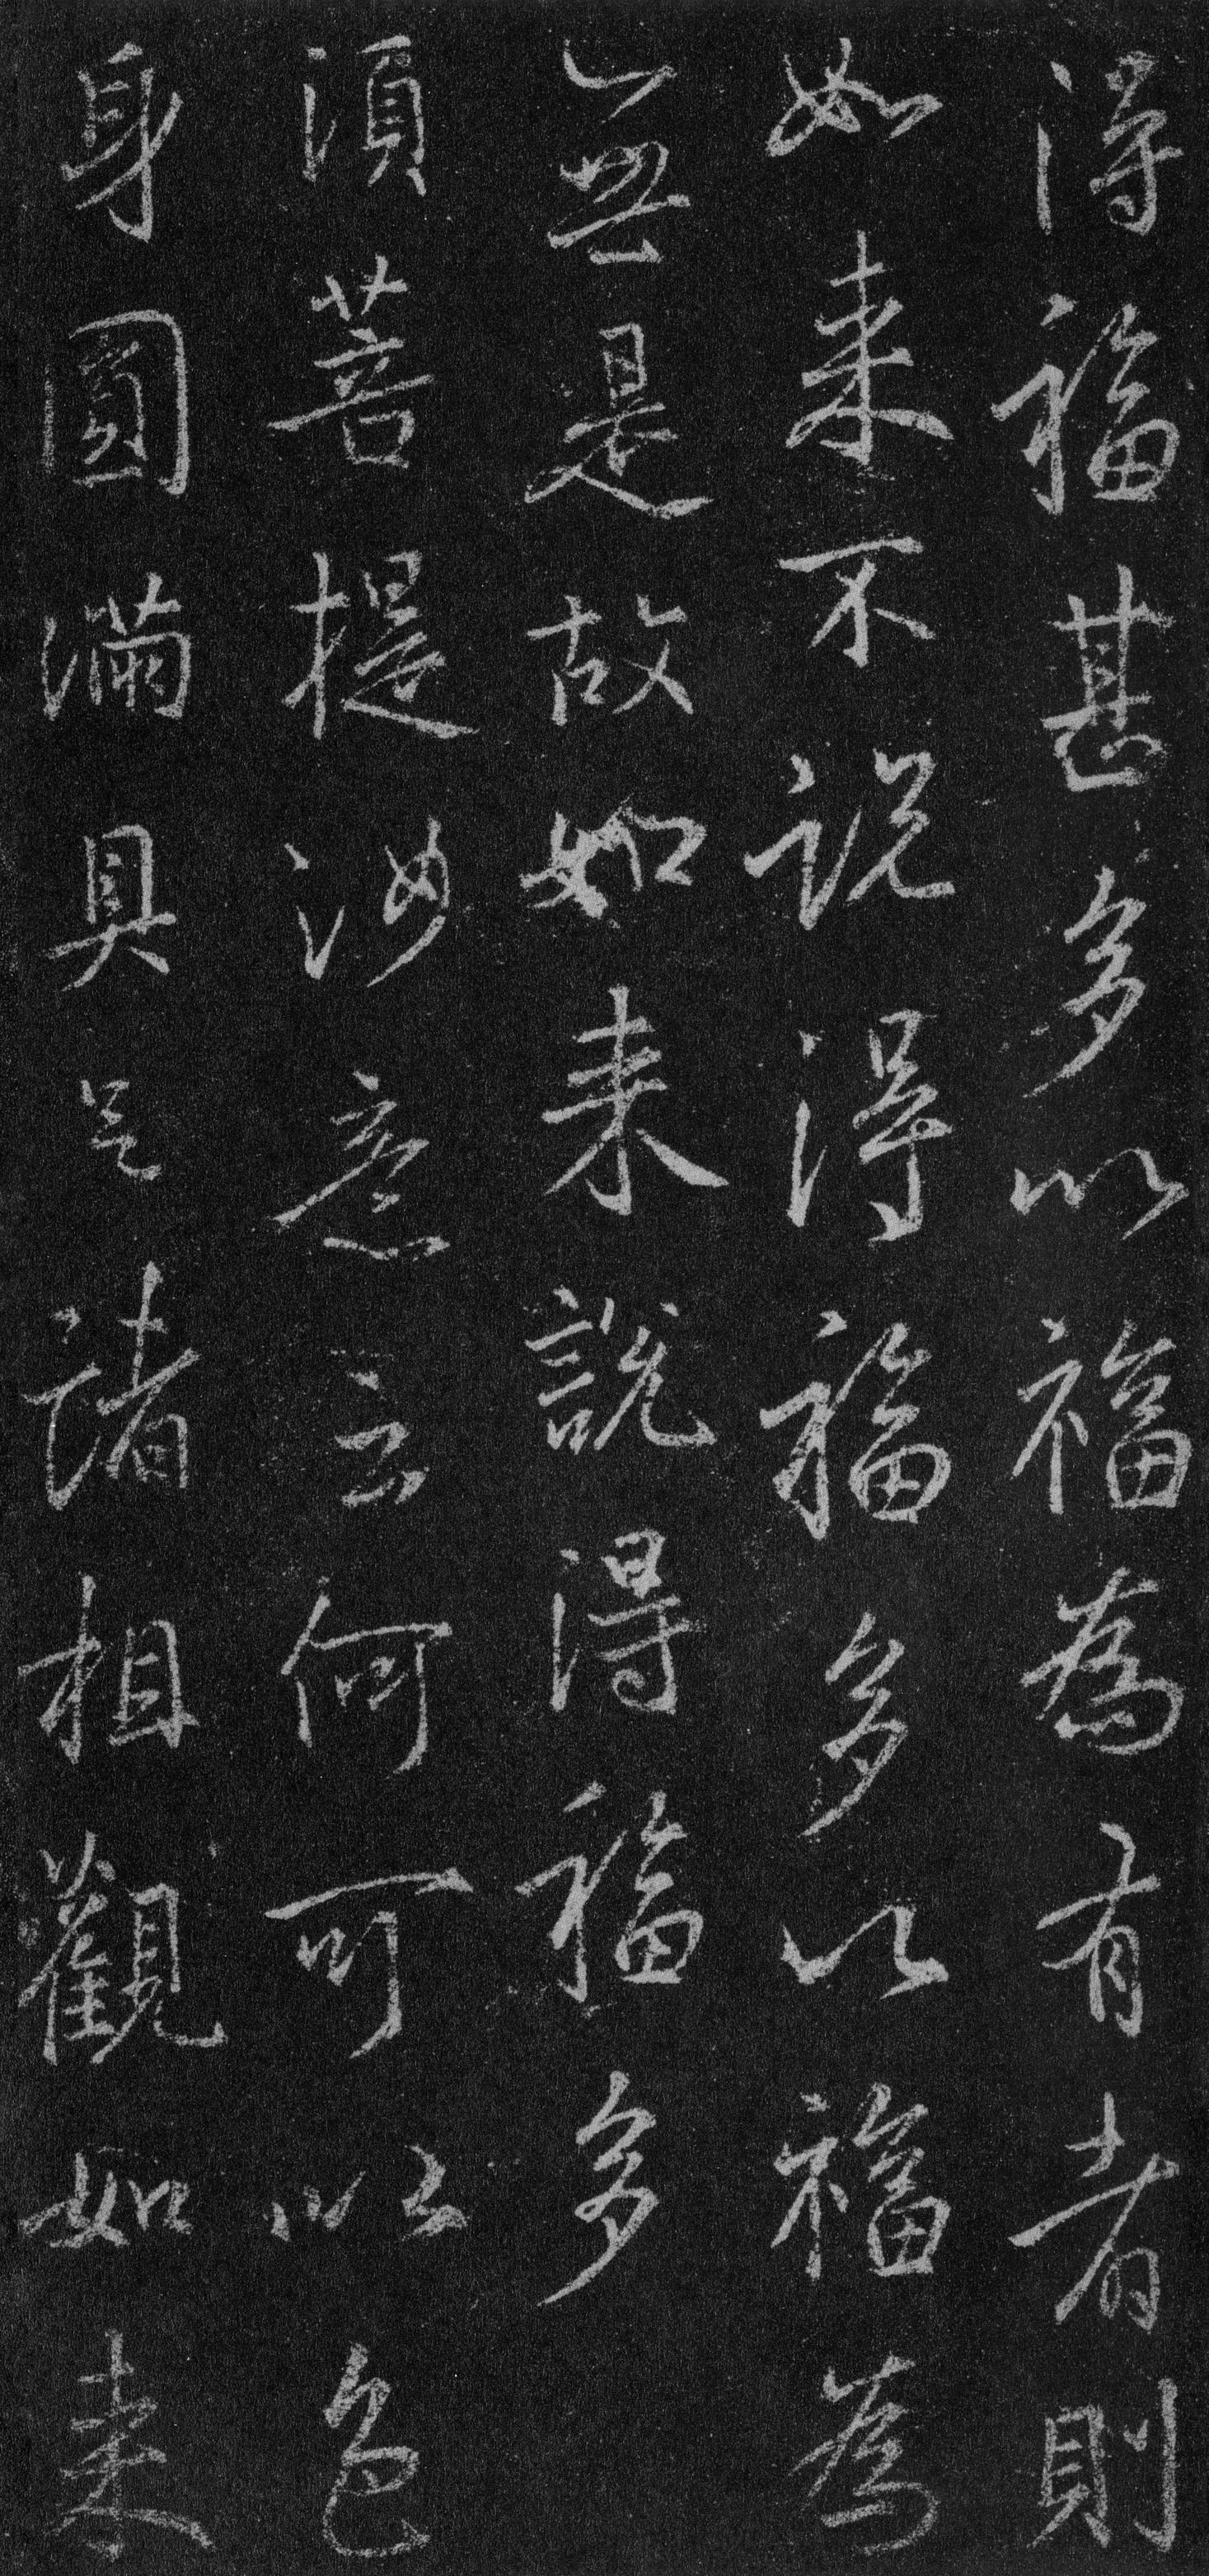 得福甚多以福爲有者則
如來不說得福多以福爲
無是故如來說得福多
須菩提汝意云何可以色
身圓滿具足諸相觀如來